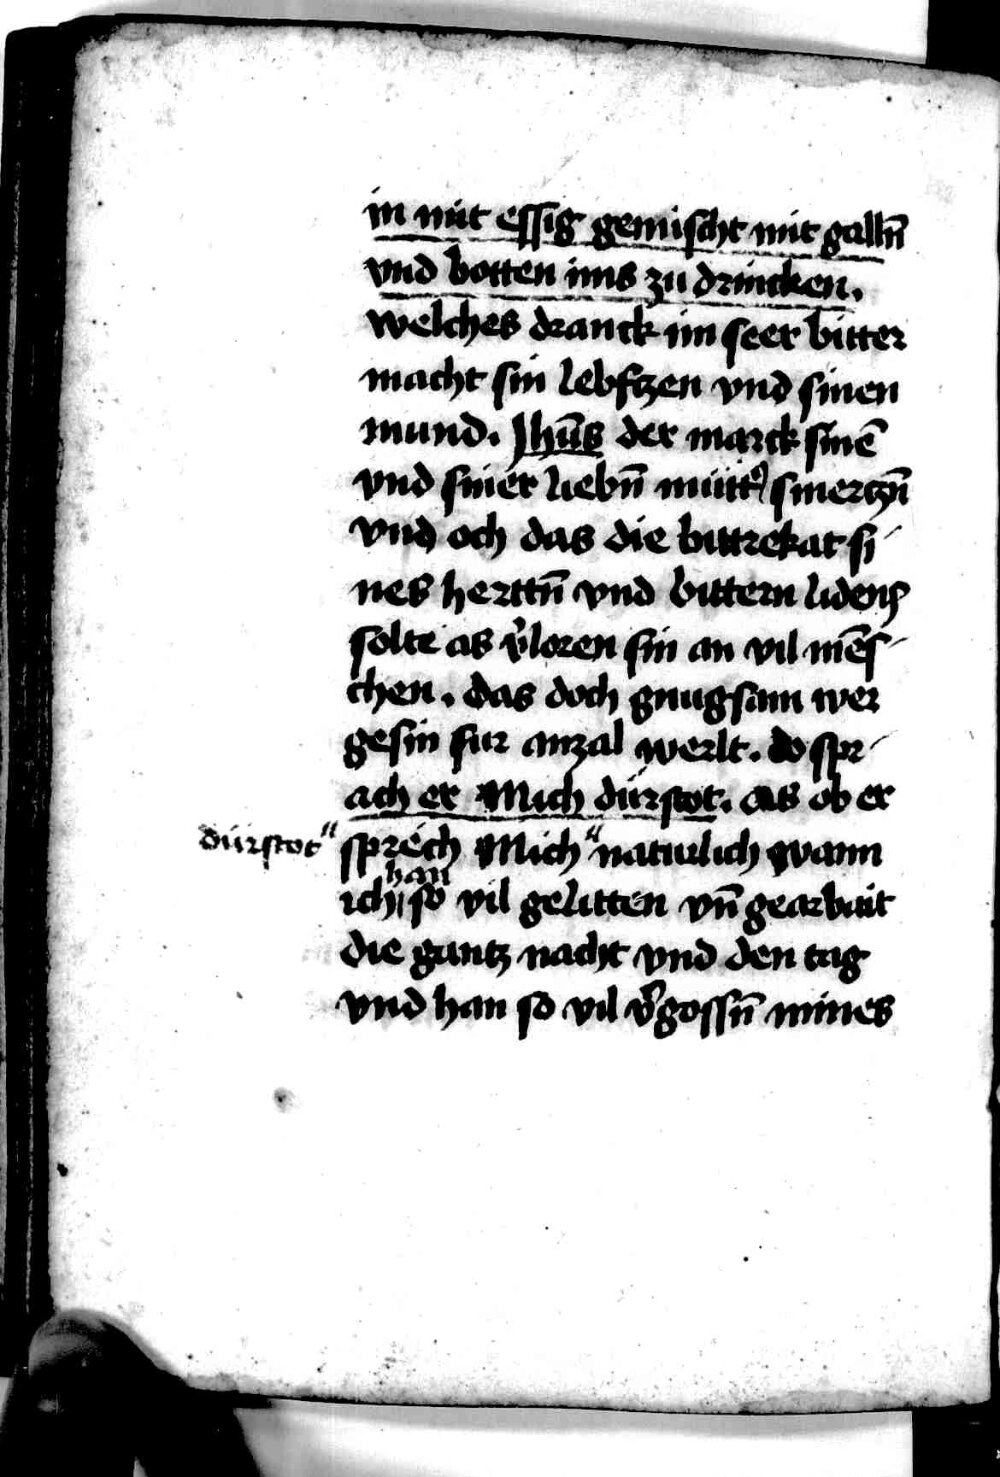 in mit essig gemischt mit galln̄
vnd botten ims zu drincken.
welches dranck im seer bitter
macht sin lebftzen vnd sinen
mund. Jhūs der marck sinē
vnd siner liebn̄ mütt̉ smertzn̄
vnd och das die bittrekat si
nes herttn̄ vnd bittern lidens
solte as v̉loren sin an vil mēs
chen. das doch gnugsam wer
gesin fur anzal werlt. do spr
ach er Mich dürstot. als ob er
dürstot" sprech Mich" naturlich wann
han
ich so vil gelitten vn̄ gearbait
die gantz nacht vnd den tag
vnd han so vil v̉gossn̄ mines